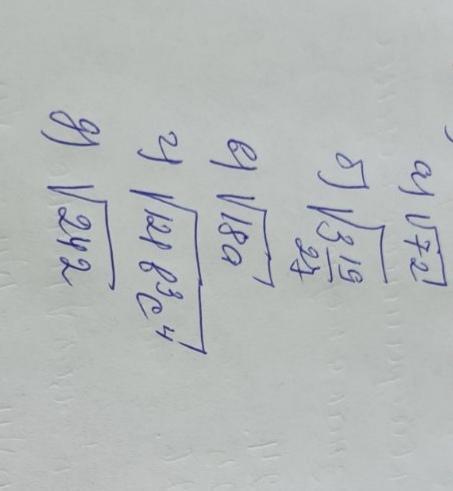 а) √72
б) √3 19/27
в) √18a
г) √121b³c⁴
д) √242